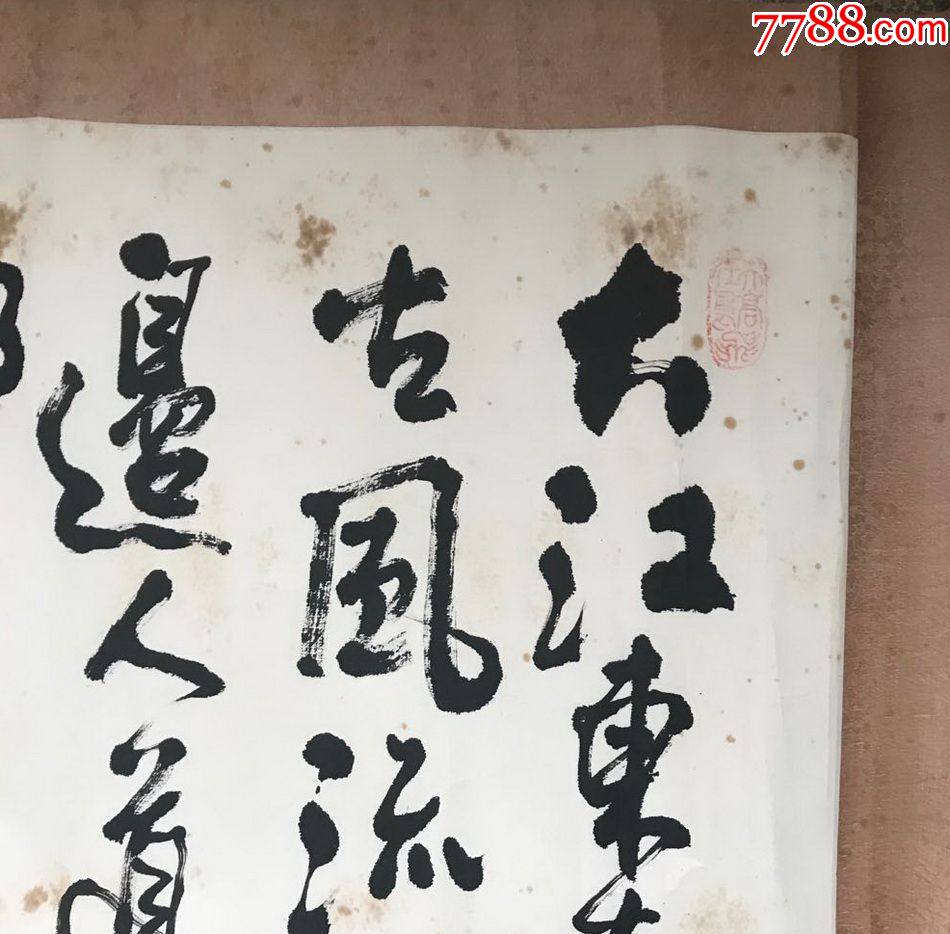 7788.com
大江東
古風流
邊人道